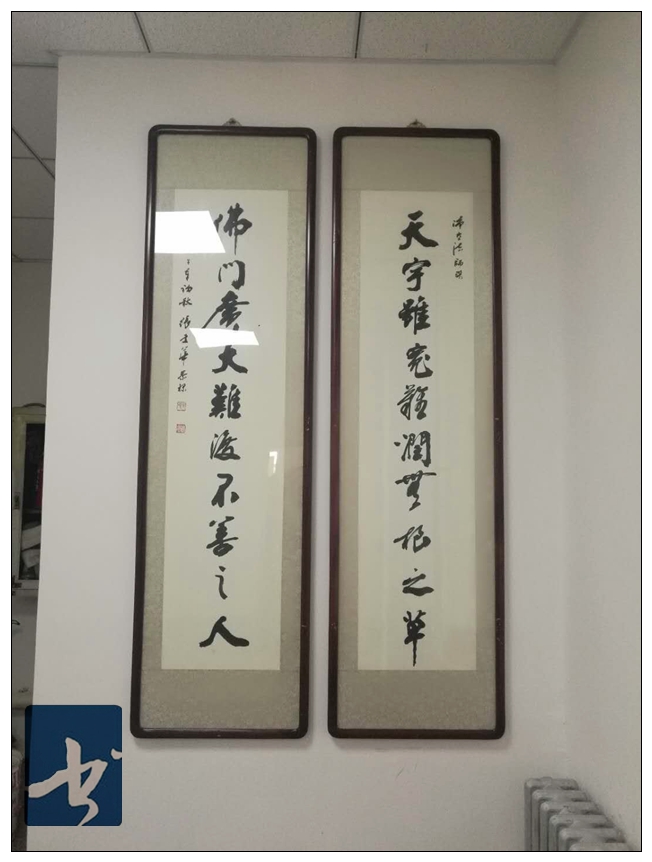 天宇雖寬難潤無根之草
佛门廣大難渡不善之人
书